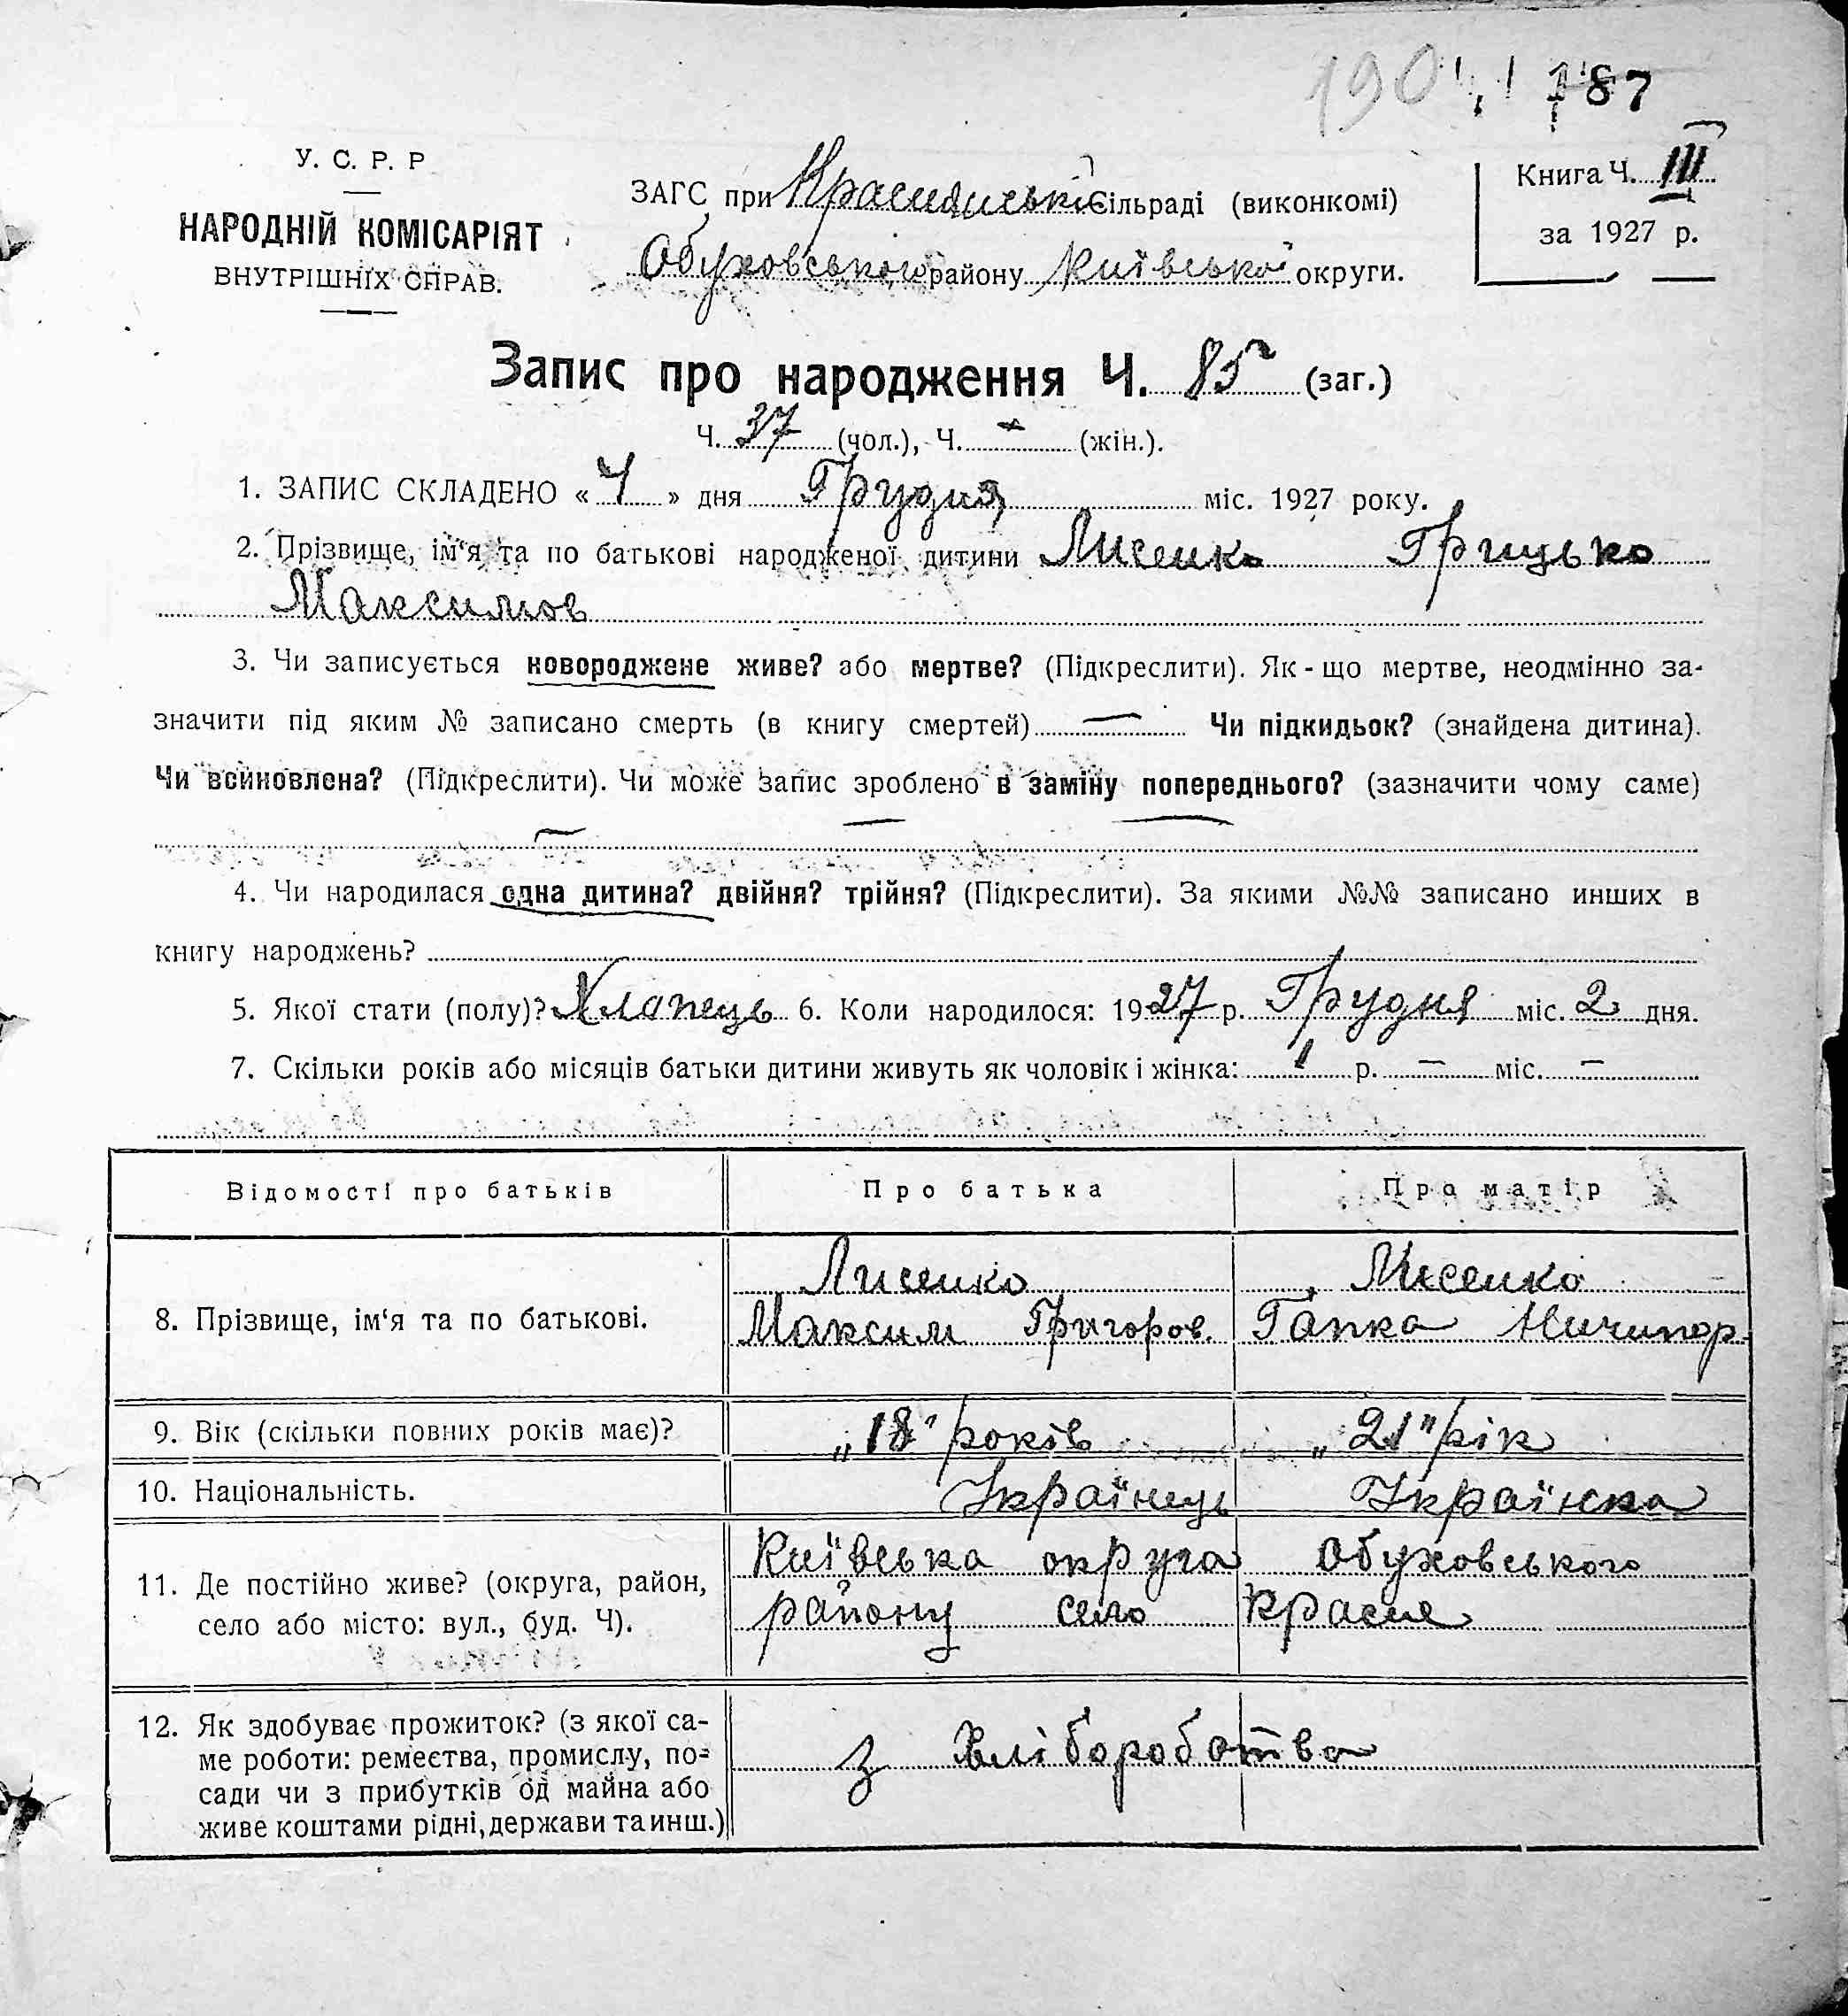 190 187
У. С. Р. Р
НАРОДНІЙ КОМІСАРІЯТ
ВНУТРІШНІХ СПРАВ.
ЗАГС при сільраді (виконкомі)
Обуховського району Київської округи.
Книга Ч. III
за 1927 р.
Запис про народження Ч. 85 (заг.)
Ч. 37 (чол.), Ч. - (жін.).
1. ЗАПИС СКЛАДЕНО « 4 » дня Грудня міс. 1927 року.
2. Прізвище, ім'я та по батькові народженої дитини Лисенко Грицько
Максимов
3. Чи записується новороджене живе? або мертве? (Підкреслити). Як-що мертве, неодмінно за-
значити під яким № записано смерть (в книгу смертей) — Чи підкидьок? (знайдена дитина).
Чи всиновлена? (Підкреслити). Чи може запис зроблено в заміну попереднього? (зазначити чому саме)
4. Чи народилася одна дитина? двійня? трійня? (Підкреслити). За якими №№ записано инших в
книгу народжень?
5. Якої стати (полу)? Хлапець 6. Коли народилося: 1927 р. Грудня міс. 2 дня.
7. Скільки років або місяців батьки дитини живуть як чоловік і жінка: 1 р. — міс. —
Відомості про батьків Про батька Про матір
8. Прізвище, ім'я та по батькові.
Лисенко
Максим Григоров.
Лисенко
Гапка Ничипор.
9. Вік (скільки повних років має)? „18" років „21" рік
10. Національність. Українець Українка
11. Де постійно живе? (округа, район,
село або місто: вул., буд. Ч).
Київська округа Обуховського
району село Красне
12. Як здобуває прожиток? (з якої са-
ме роботи: ремества, промислу, по-
сади чи з прибутків од майна або
живе коштами рідні, держави та инш.)
з хліборобства